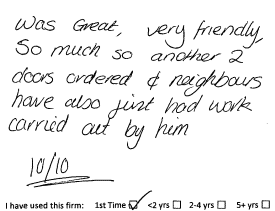 Was Great, very friendly.
So much so another 2
doors ordered & neighbours
have also just had work
carried out by him
10/10
I have used this firm: 1st Time ☑ <2 yrs ☐ 2-4 yrs ☐ 5+ yrs ☐